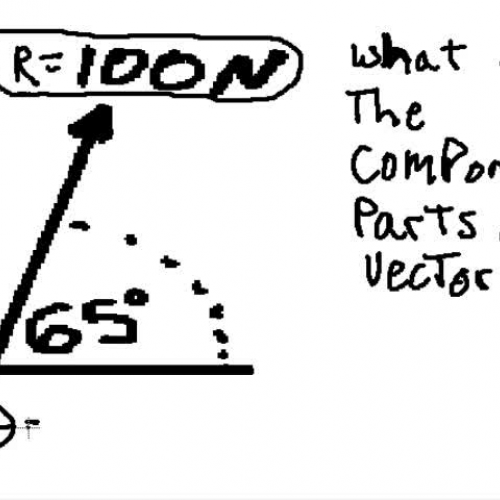 R=100N
what
The
Compon
Parts
Vector
65°